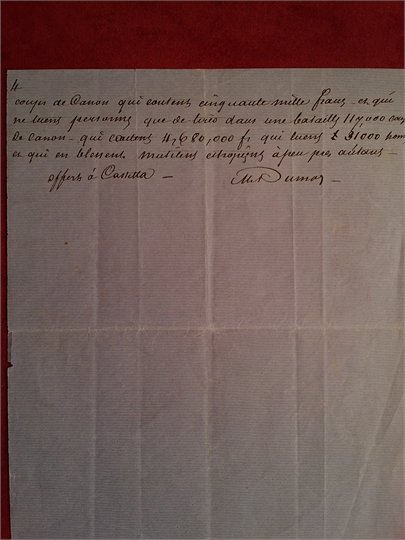 4
coups de Canon qui coutent cinquante mille francs – et qui
ne tuent personne que de tirer dans une bataille 117,000 coups
de canon – qui coutent 4,680,000 fr qui tuent 31000 hom
et qui en blessent mutilent estropient à peu près autant –
offert à Cassitta –
Alx Dumas –